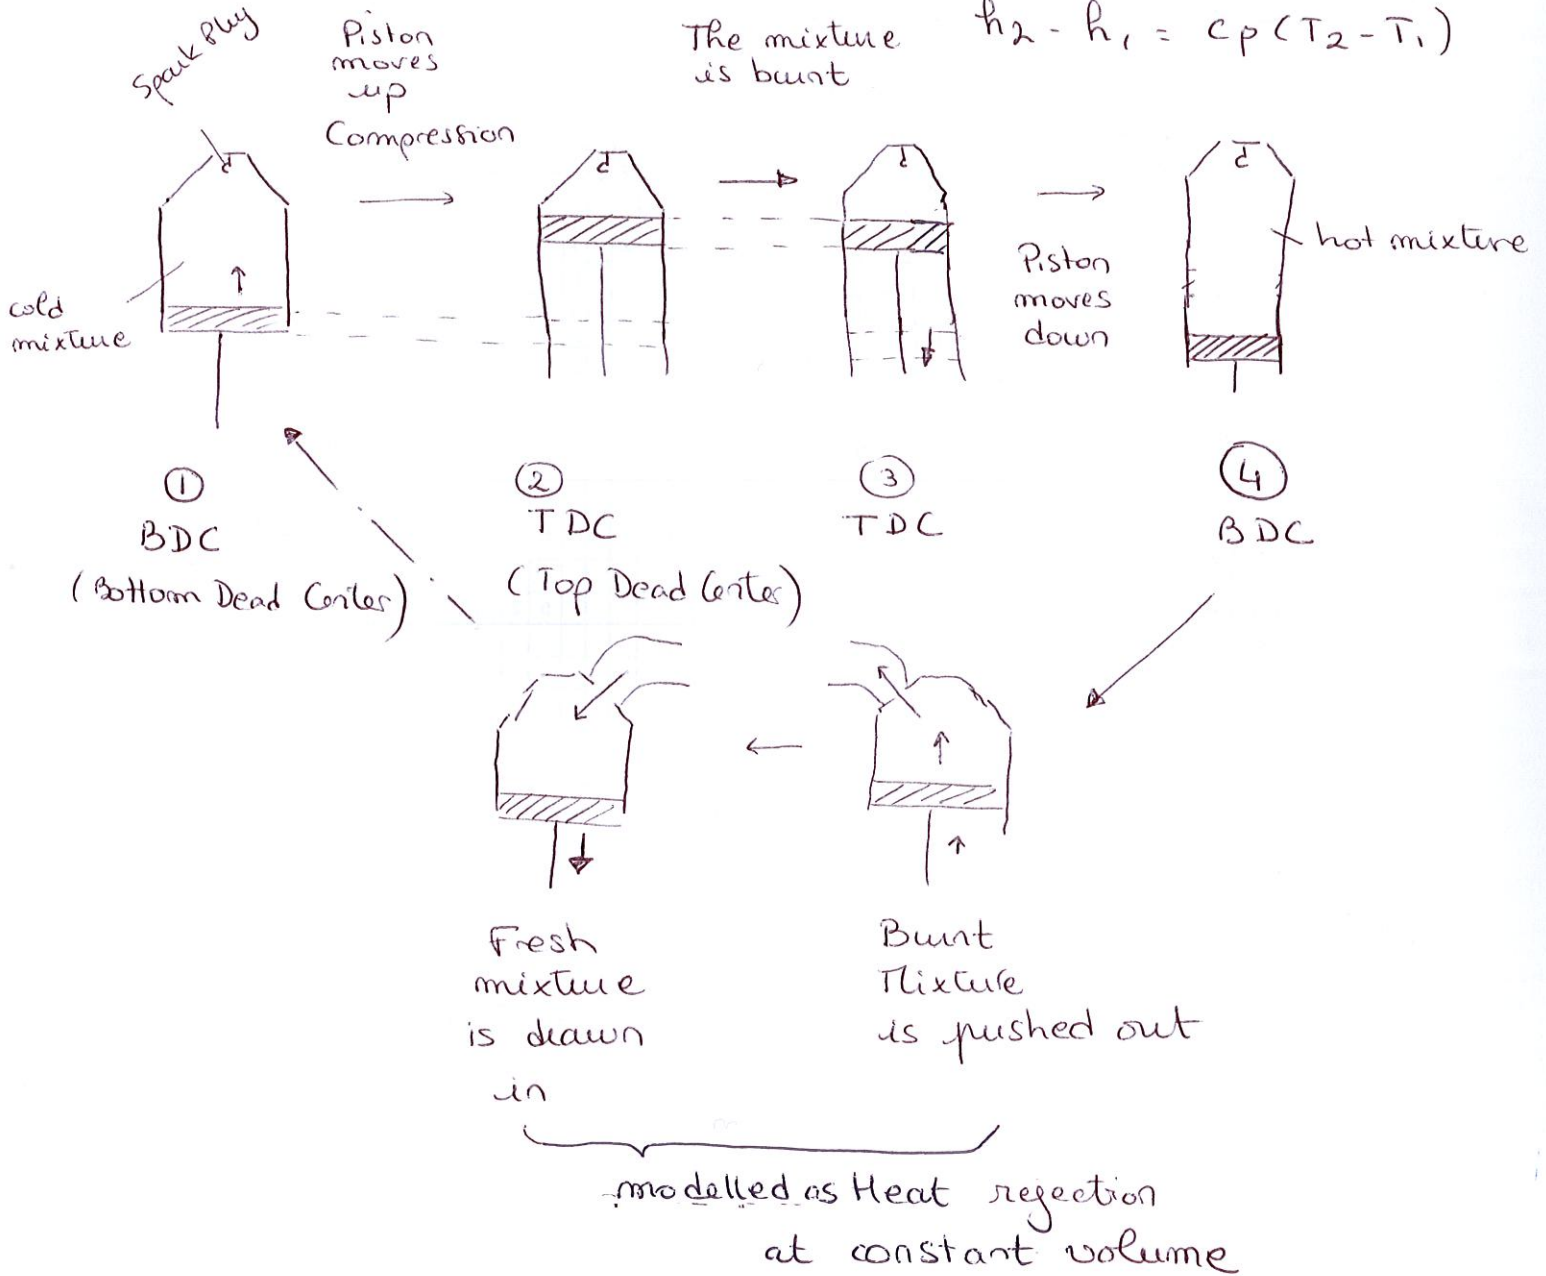 Spark Plug
Piston
moves
up
Compression
The mixture
is burnt
h2 - h1 = cp(T2-T1)
cold
mixture
Piston
moves
down
hot mixture
1
BDC
(Bottom Dead Center)
2
TDC
(Top Dead Center)
3
TDC
4
BDC
Fresh
mixture
is drawn
in
Burnt
Mixture
is pushed out
modelled as Heat rejection
at constant volume